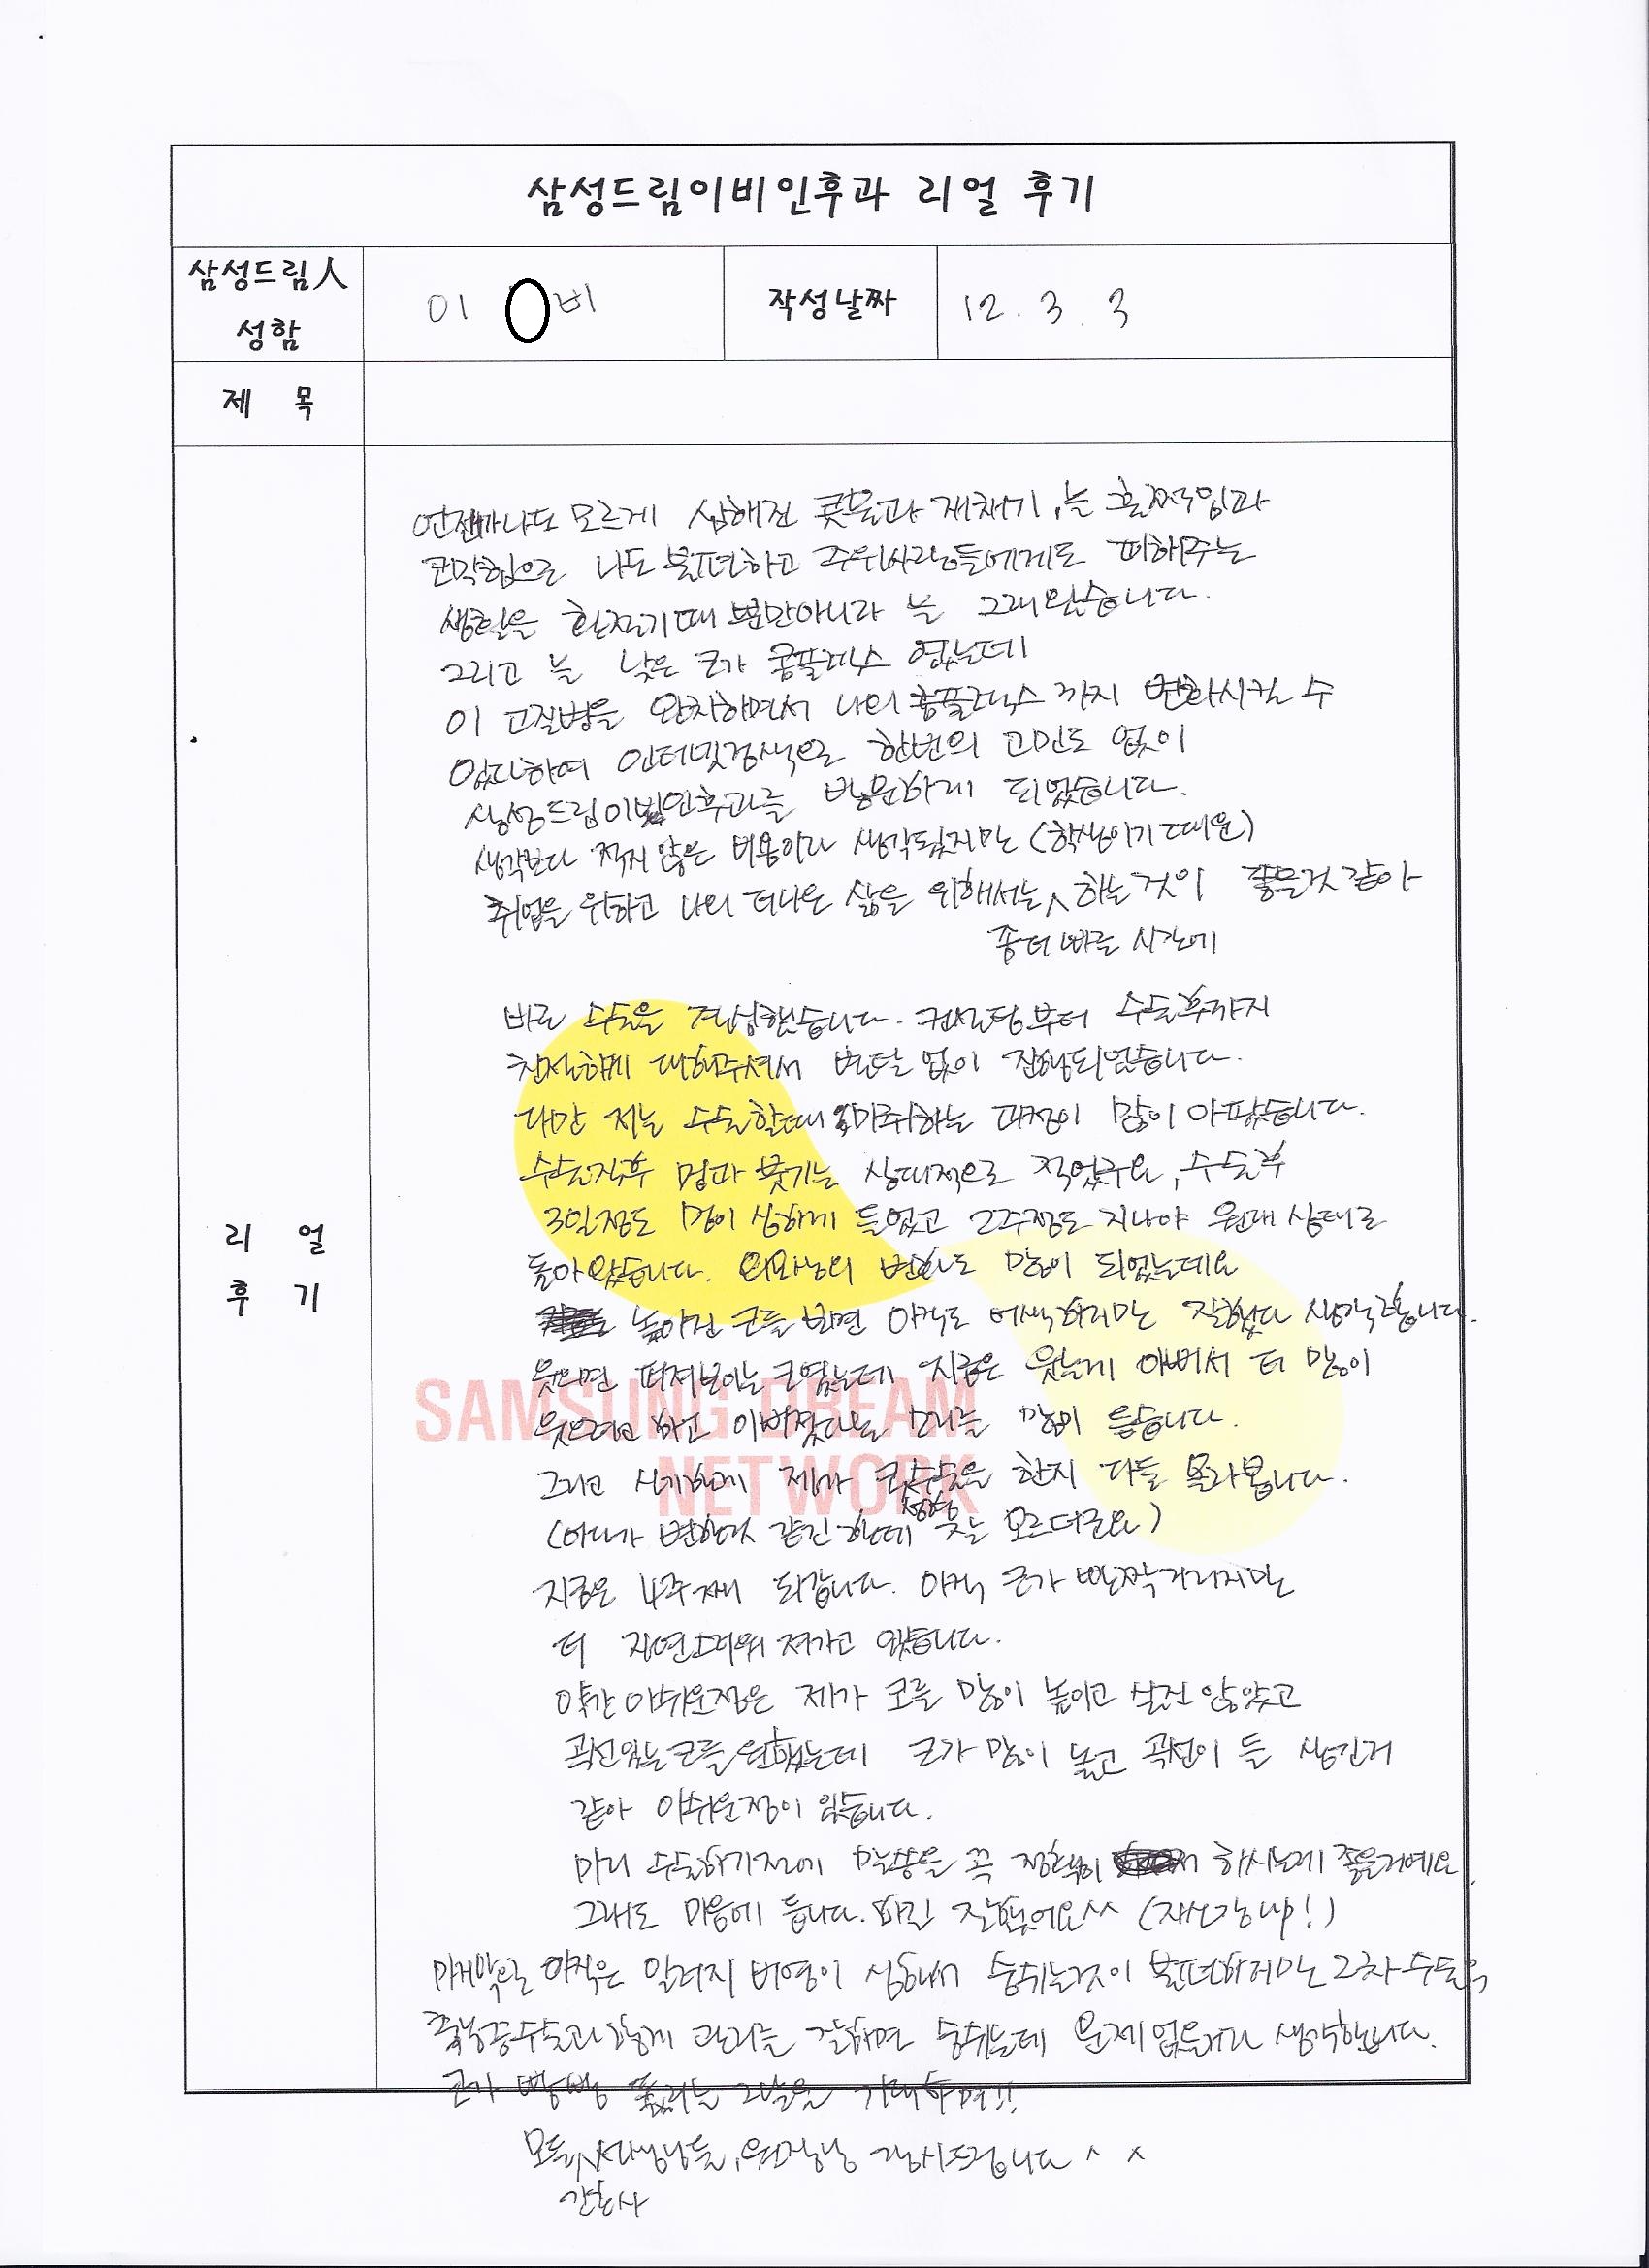 삼성드림이비인후과 리얼 후기
삼성드림人 성함
이 비
작성날짜
12. 3. 3
제 목
리 얼 후 기
언젠가나도 모르게 심해진 콧물과 재채기, 눈 훌쩍임과
코막힘으로 나도 불편하고 주위사람들에게도 피해주는
생활을 환절기때 뿐만아니라 늘 그래왔습니다.
그리고 늘 낮은 코가 콤플렉스 였는데
이 고질병을 완치하면서 나의 콤플렉스 까지 변화시킬 수
있다하여 인터넷검색으로 한번의 고민도 없이
삼성드림이비인후과를 방문하게 되었습니다.
생각보다 적지 않은 비용이라 생각됬지만 (학생이기 때문)
취업을 위하고 나의 더나은 삶을 위해서는 하는 것이 좋을것 같아
좀더 빠른 시간에
바로 수술을 결심했습니다. 컨설팅부터 수술후까지
친절하게 대해주셔서 별탈 없이 진행되었습니다.
다만 저는 수술할때 마취하는 과정이 많이 아팠습니다.
수술직후 멍과 붓기는 상대적으로 적었구요, 수술후
3일정도 멍이 심하게 들었고 2주정도 지나야 원래 상태로
돌아왔습니다. 외모상의 변화도 많이 되었는데요
높아진 코를 보면 아직도 어색하지만 잘했다 생각듭니다.
웃으면 퍼져보이는 코였는데 지금은 웃는게 이뻐서 더 많이
웃으려고 하고 이뻐졌다는 소리를 많이 듣습니다.
그리고 신기하게 제가 코수술을 한지 다들 몰라봅니다.
(어디가 변한것 같긴 한데 성형 모르더군요)
지금은 4주째 되갑니다. 아직 코가 반짝거리지만
더 자연스러워 져가고 있습니다.
약간 아쉬운점은 제가 코를 많이 높이고 싶진 않았고
곡선있는 코를 원했는데 코가 많이 높고 곡선이 들 생긴거
같아 아쉬운점이 있습니다.
미리 수술하기전에 말씀을 꼭 정확히 하시는게 좋을거에요.
그래도 마음에 듭니다. 하긴 잘했어요^^ (자신감up!)
마지막으로 아직은 알러지 비염이 심해서 숨쉬는것이 불편하지만 2차 수술을,
축농증수술과 함께 관리를 잘하면 숨쉬는데 문제없을거라 생각합니다.
코가 뻥뻥 뚫리는 그날을 기대하며!!
모든 선생님들, 원장님 감사드립니다 ^ ^
간호사
SAMSUNG DREAM
NETWORK